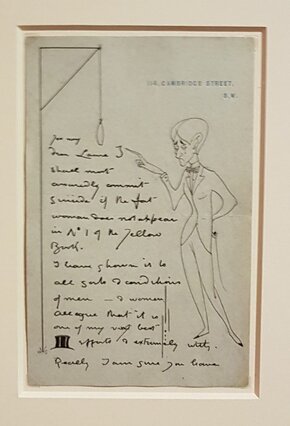 114, CAMBRIDGE STREET,
S.W.
My dear Lane I
shall most
assuredly commit
suicide if the fat
woman does not appear
in No 1 of the Yellow
Book.
I have shown it to
all sorts & conditions
of men — & women
all agree that it is
one of my very best
efforts & extremely witty.
Really I am sure you have